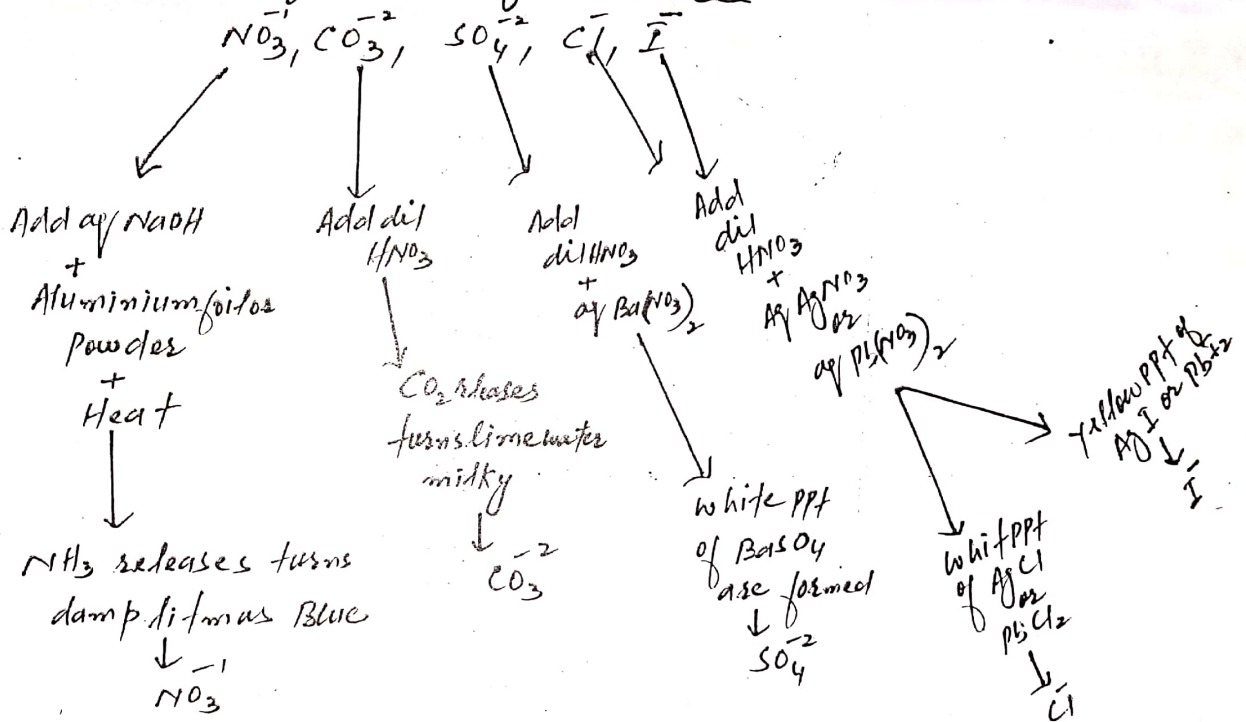 NO₃⁻¹, CO₃⁻², SO₄⁻², Cl⁻, I⁻
Add aq NaOH
+
Aluminium foil or
Powder
+
Heat
NH₃ releases turns
damp litmus Blue
↓
NO₃⁻¹
Add dil
HNO₃
CO₂ releases
turns lime water
milky
↓
CO₃⁻²
Add
dil HNO₃
+
aq Ba(NO₃)₂
white ppt
of BaSO₄
are formed
↓
SO₄⁻²
Add
dil
HNO₃
+
Aq AgNO₃
or
aq Pb(NO₃)₂
whit ppt
of AgCl
or
PbCl₂
↓
Cl⁻
Yellow PPt of
AgI or Pb⁺²
↓
I⁻